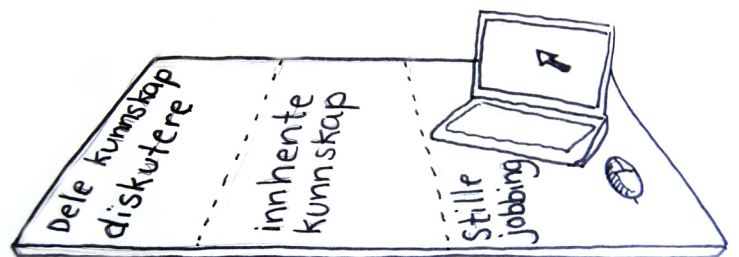 Dele kunnskap
diskutere
innhente
kunnskap
Stille
jobbing